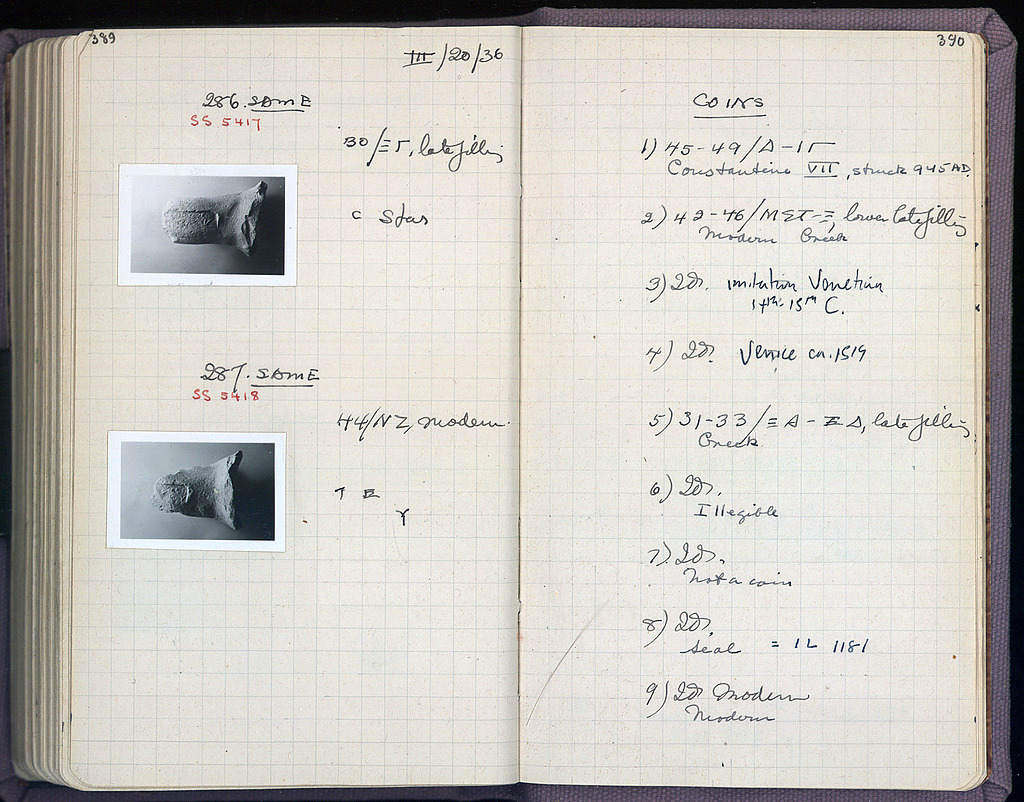 389
III/20/36
286. SAME
SS 5417
30/ΞΓ, late filling
c Star
287. SAME
SS 5418
44/ΝΖ, modern
T E
γ
390
COINS
1) 45-49/Δ-ΙΓ
Constantine VII, struck 945 AD.
2) 42-46/ΜΣΤ-Ξ, lower late filling
Modern Greek
3) ID. imitation Venetian
14th-15th C.
4) ID. Venice ca. 1519
5) 31-33/ΞΔ-ΞΔ, late filling
Greek
6) ID.
Illegible
7) ID.
Not a coin
8) ID.
Seal = IL 1181
9) ID Modern
Modern